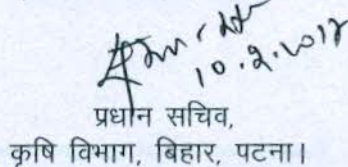 10.2.2017
प्रधान सचिव,
कृषि विभाग, बिहार, पटना।